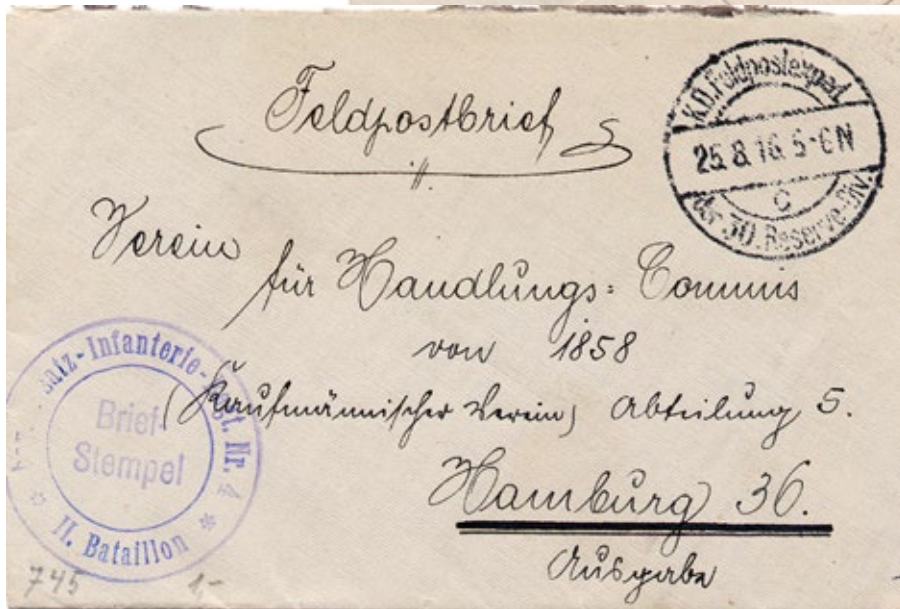 Feldpostbrief
K.D.Feldpostexped.
25.8.16. 5-6N
c
der 30. Reserve-Div.
Verein
für Handlungs-Commis
von 1858
(Kaufmännischer Verein) Abteilung 5.
Hamburg 36.
Ausgabe
satz-Infanterie- Nr. 4
Brief-
Stempel
II. Bataillon
745 1,-